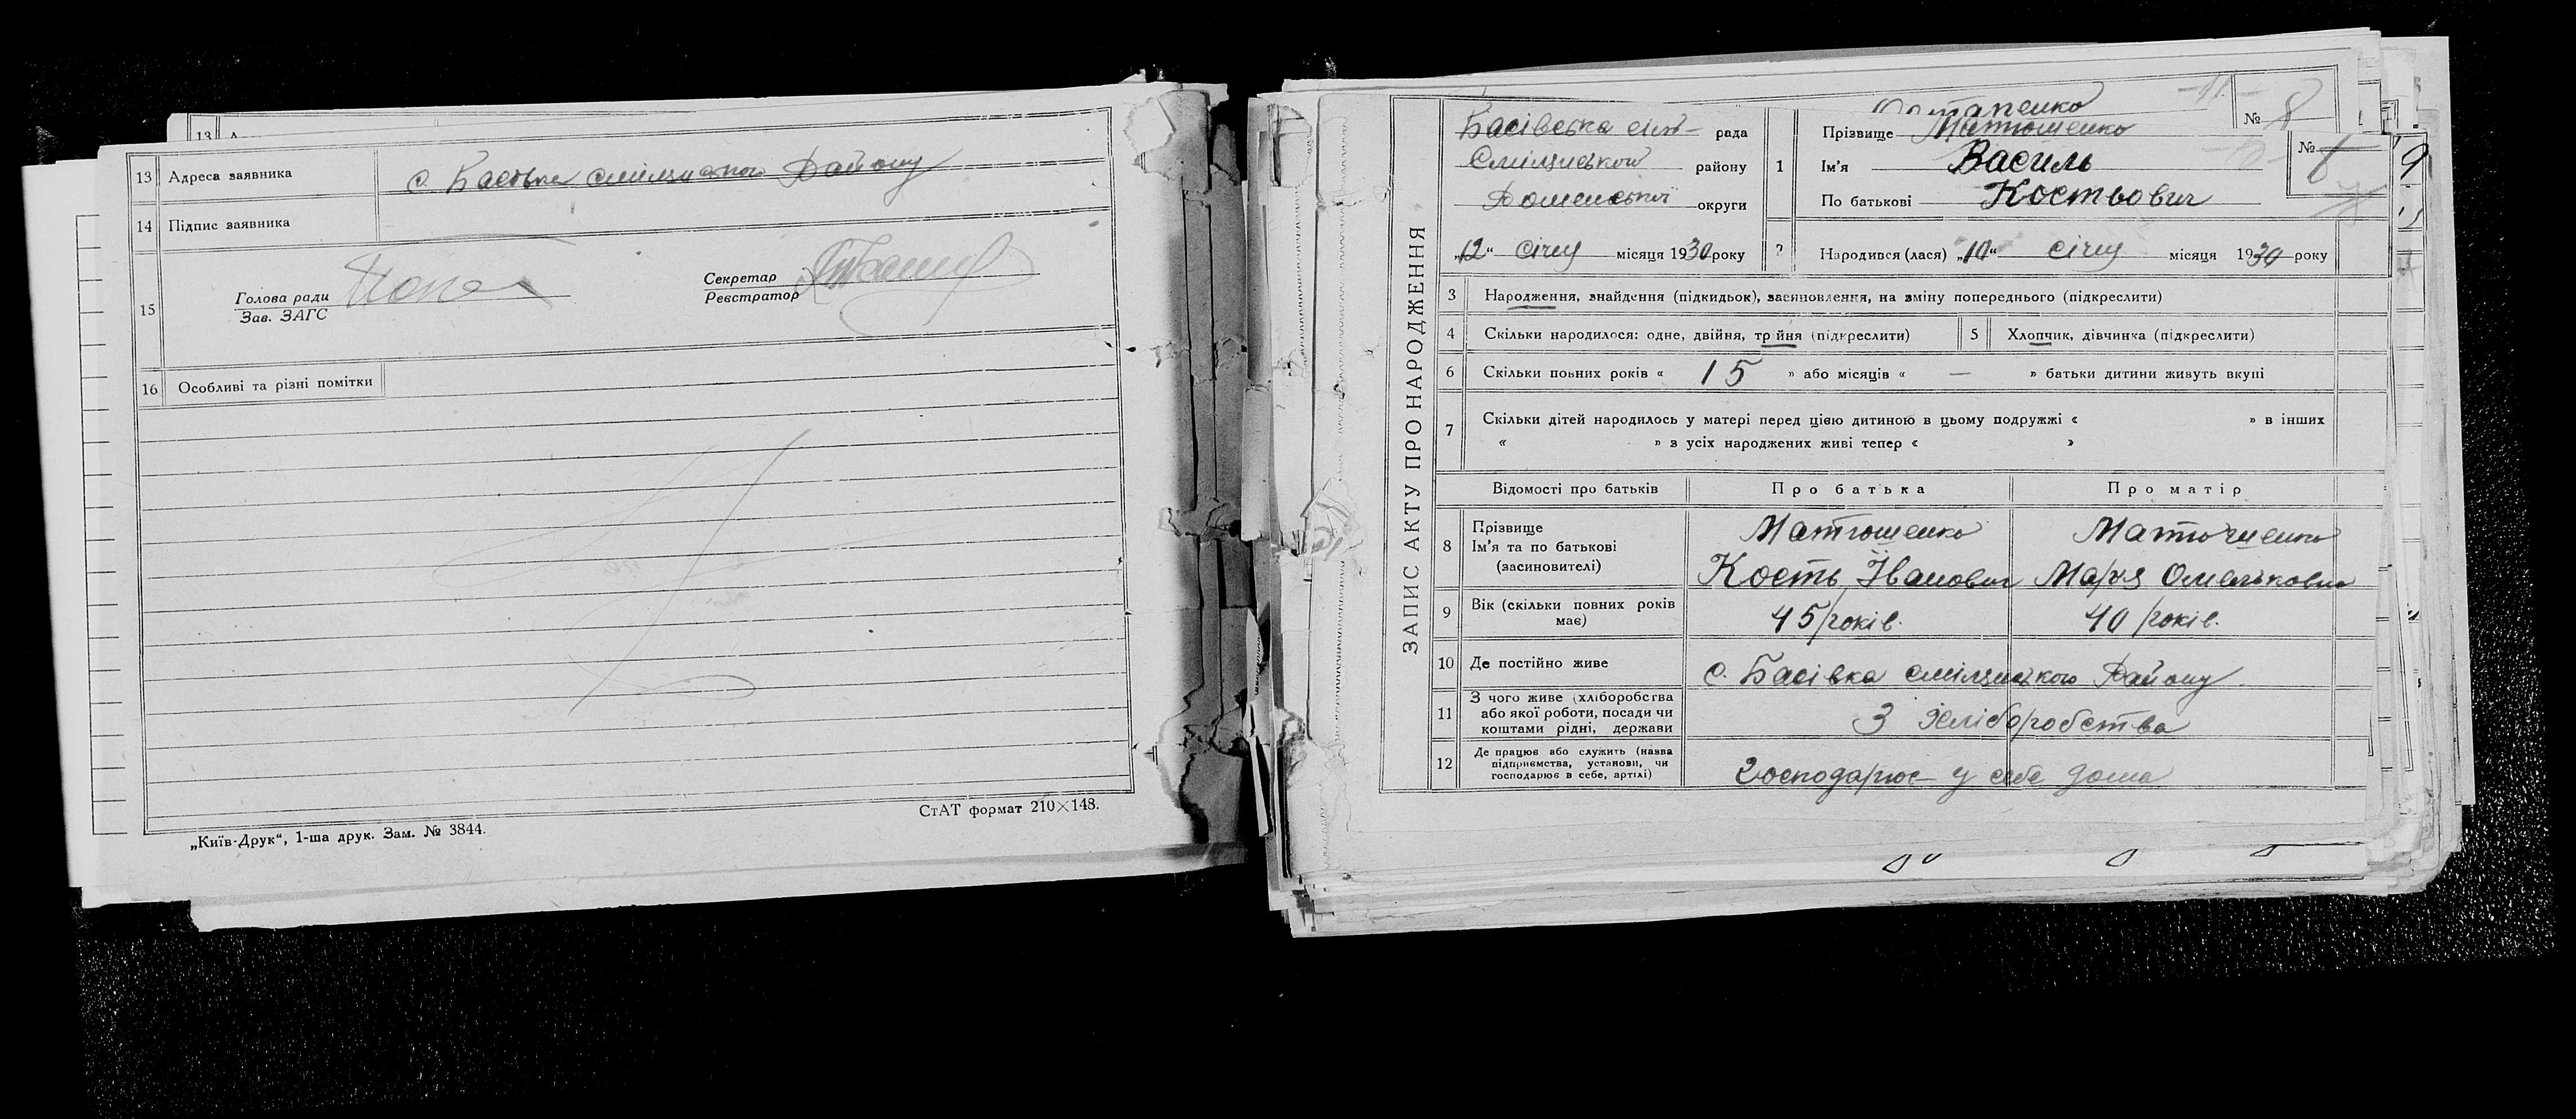 13 Адреса заявника с. Басівка Смілянського Району
14 Підпис заявника
15 Голова ради
Зав. ЗАГС
Секретар
Реєстратор
16 Особливі та різні помітки
СтАТ формат 210×148.
„Київ-Друк“, 1-ша друк. Зам. № 3844.
№ 8
ЗАПИС АКТУ ПРО НАРОДЖЕННЯ
Басівська сіл- рада
району
Роменської округи
„12“ січня місяця 1930 року
1 Прізвище Матюшенко
Ім'я Василь
По батькові Костьович
№ 6
9
2 Народився (лася) „10“ січня місяця 1930 року
3 Народження, знайдення (підкидьок), засиновлення, на зміну попереднього (підкреслити)
4 Скільки народилося: одне, двійня, тройня (підкреслити)
5 Хлопчик, дівчинка (підкреслити)
6 Скільки повних років « 15 » або місяців « — » батьки дитини живуть вкупі
7 Скільки дітей народилось у матері перед цією дитиною в цьому подружжі « » в інших
« » з усіх народжених живі тепер « »
Відомості про батьків Про батька Про матір
8 Прізвище Матюшенко Матюшенко
Ім'я та по батькові Кость Іванович Марія Омельковна
(засиновителі)
9 Вік (скільки повних років має) 45 років. 40 років.
10 Де постійно живе с. Басівка Району
11 З чого живе (хліборобства
або якої роботи, посади чи
коштами рідні, держави З хліборобства
12 Де працює або служить (назва
підприємства, установи, чи
господарює в себе, артілі) Господарює у себе дома